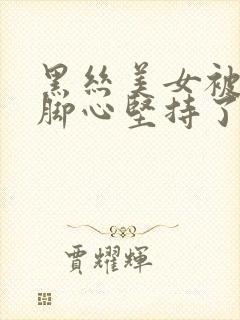 黑丝美女被
脚心坚持了
贾耀辉